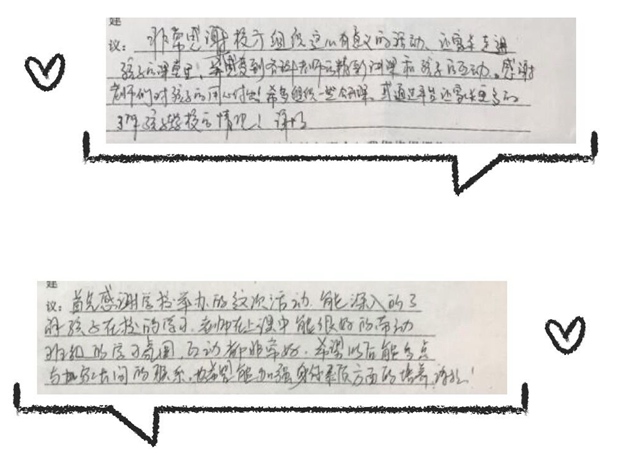 建
议：非常感谢校方组织这次有意义的活动、让家长走进
孩子的课堂里，亲身感受到各位老师的精彩讲课和孩子的互动。感谢
老师们对孩子的用心付出！希望组织一些公开课，或通过 让家长更多的
了解孩子在校的情况！谢谢
建
议：首先感谢学校举办的这次活动，能深入的了
解孩子在校的学习，老师在上课中能很好的带动
班级的学习氛围，互动都非常好，希望以后能多点
与家长之间的联系，也希望能加强身体素质方面的培养，谢谢！